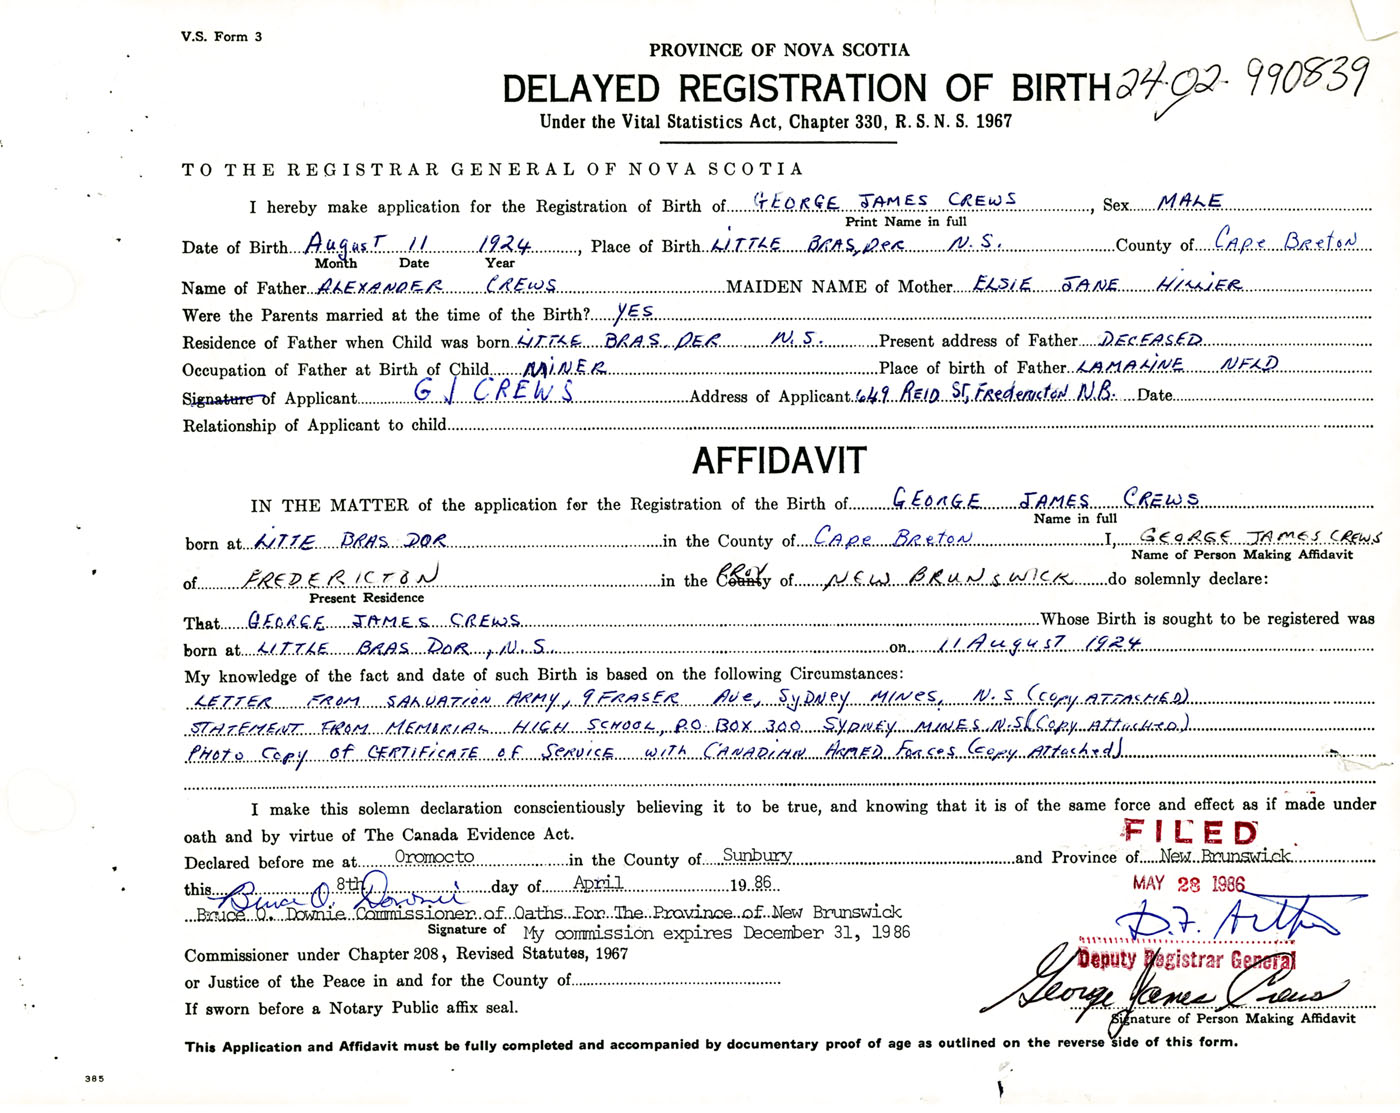 V.S. Form 3
PROVINCE OF NOVA SCOTIA
DELAYED REGISTRATION OF BIRTH 24-02-990839
Under the Vital Statistics Act, Chapter 330, R.S.N.S. 1967
TO THE REGISTRAR GENERAL OF NOVA SCOTIA
I hereby make application for the Registration of Birth of GEORGE JAMES CREWS, Sex MALE
Print Name in full
Date of Birth August 11 1924, Place of Birth LITTLE BRAS, DER N.S. County of CAPE BRETON
Month Date Year
Name of Father ALEXANDER CREWS MAIDEN NAME of Mother ELSIE JANE HILLIER
Were the Parents married at the time of the Birth? YES
Residence of Father when Child was born LITTLE BRAS DER N.S. Present address of Father DECEASED
Occupation of Father at Birth of Child MINER Place of birth of Father LAMALINE NFLD
Signature of Applicant G J CREWS Address of Applicant 649 REID ST, FREDERICTON N.B. Date
Relationship of Applicant to child
AFFIDAVIT
IN THE MATTER of the application for the Registration of the Birth of GEORGE JAMES CREWS
Name in full
born at LITTE BRAS DOR in the County of CAPE BRETON I, GEORGE JAMES CREWS
Name of Person Making Affidavit
of FREDERICTON in the County PROV of NEW BRUNSWICK do solemnly declare:
Present Residence
That GEORGE JAMES CREWS Whose Birth is sought to be registered was
born at LITTLE BRAS DOR, N.S. on 11 August 1924
My knowledge of the fact and date of such Birth is based on the following Circumstances:
LETTER FROM SALVATION ARMY, 9 FRASER AVE, SYDNEY MINES, N.S (COPY ATTACHED)
STATEMENT FROM MEMORIAL HIGH SCHOOL, P.O. BOX 300 SYDNEY MINES N.S (COPY ATTACHED)
PHOTO COPY OF CERTIFICATE OF SERVICE WITH CANADIAN ARMED FORCES (COPY ATTACHED)
I make this solemn declaration conscientiously believing it to be true, and knowing that it is of the same force and effect as if made under
oath and by virtue of The Canada Evidence Act.
FILED
Declared before me at Oromocto in the County of Sunbury and Province of New Brunswick
this 8th day of April 19 86
MAY 28 1986
Bruce O. Downie
Bruce O. Downie Commissioner of Oaths For The Province of New Brunswick
Signature of My commission expires December 31, 1986
Commissioner under Chapter 208, Revised Statutes, 1967
Deputy Registrar General
or Justice of the Peace in and for the County of
George James Crews
If sworn before a Notary Public affix seal.
Signature of Person Making Affidavit
This Application and Affidavit must be fully completed and accompanied by documentary proof of age as outlined on the reverse side of this form.
385